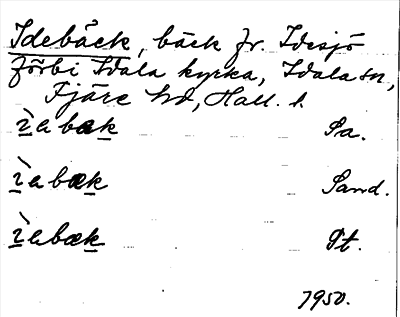 Idebäck, bäck fr. Idesjö
förbi Idala kyrka, Idala sn,
Fjäre hd, Hall. l.
ìəbæk Sa.
ìəbæk Sand.
ìəbæk St.
1950.